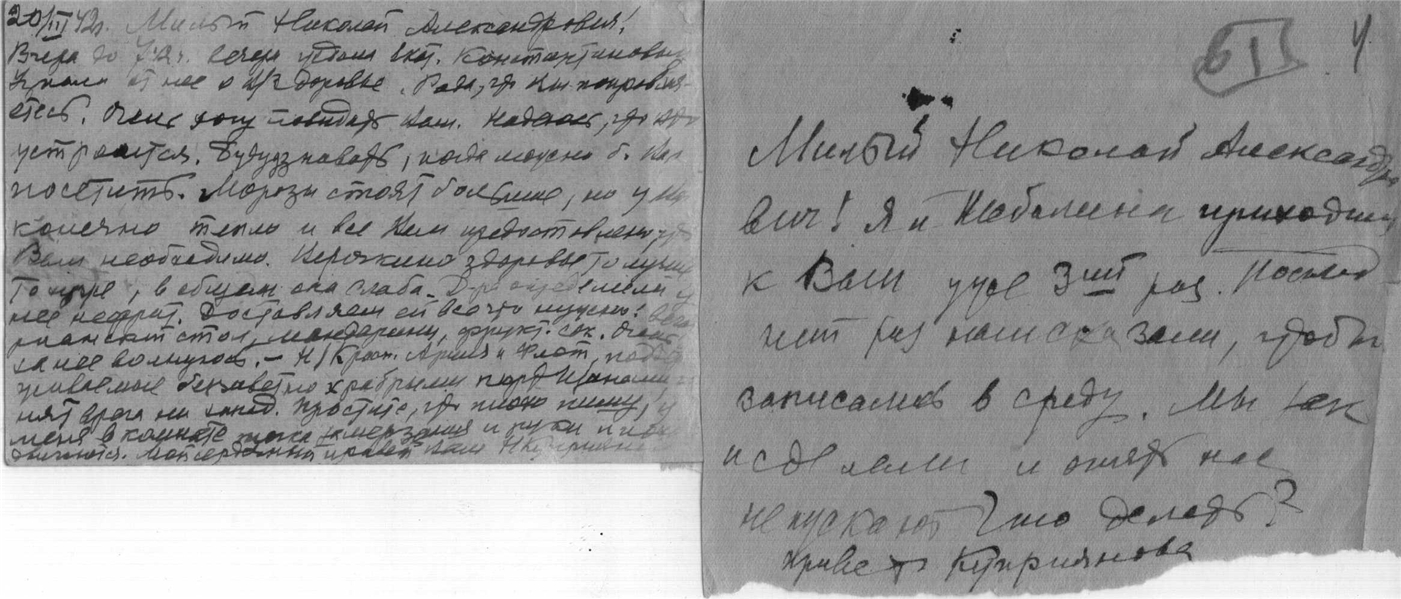 20/II 42г. Милый Николай Александрович!
Вчера до 7 ч. вечера Конст. Константиновны
Узнала от нее о В/здоровье. Рада, что Вы поправля-
етесь. Очень хочу повидать Вас. Надеюсь, что это
устроится. Буду узнавать, когда можно б. Вас
посетить. Морозы стоят большие, но у Вас
конечно тепло и все Вам предоставлено что
Вам необходимо. Верочкино здоровье то лучше
то хуже, в общем она слаба. определили у
нее нефрит. Доставляем ей все что нужно:
стол, мандарины, фрукт. сок. Очень
за нее волнуюсь. – Н/ Красн. Армия и Флот,
беззаветно храбрыми партизанами
нят врага на запад. Простите, что плохо пишу, у
меня в комнате замерзания и руки
Мой сердечный привет Вам НКуприянова
61
Милый Николай Александро
вич! Я и приходим
к Вам уже 3ий раз. Послед
ний раз нам сказали, чтобы
записались в среду. Мы так
и сделали и опять нас
не пускают Что делать?
Привет Куприянова